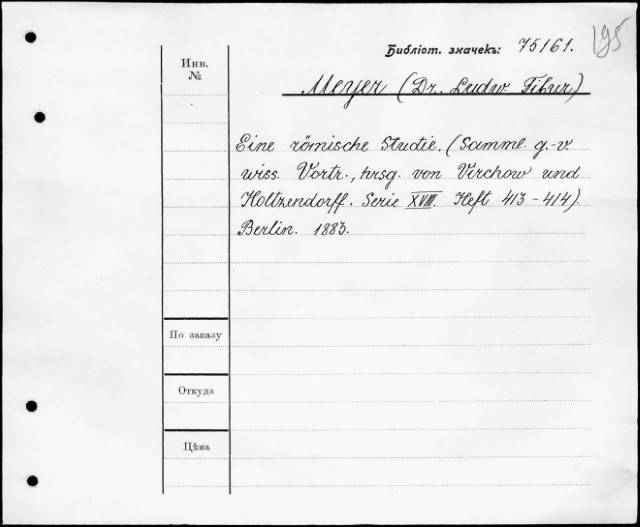 Библіот. значекъ: 75161.
195
Инв. №
Meyer (Dr. Ludw. Tibur)
Eine römische Studie. (Samml. g.-v.
wiss. Vortr., hrsg. von Virchow und
Holtzendorff. Serie XVIII. Heft 413-414).
Berlin. 1883.
По заказу
Откуда
Цѣна